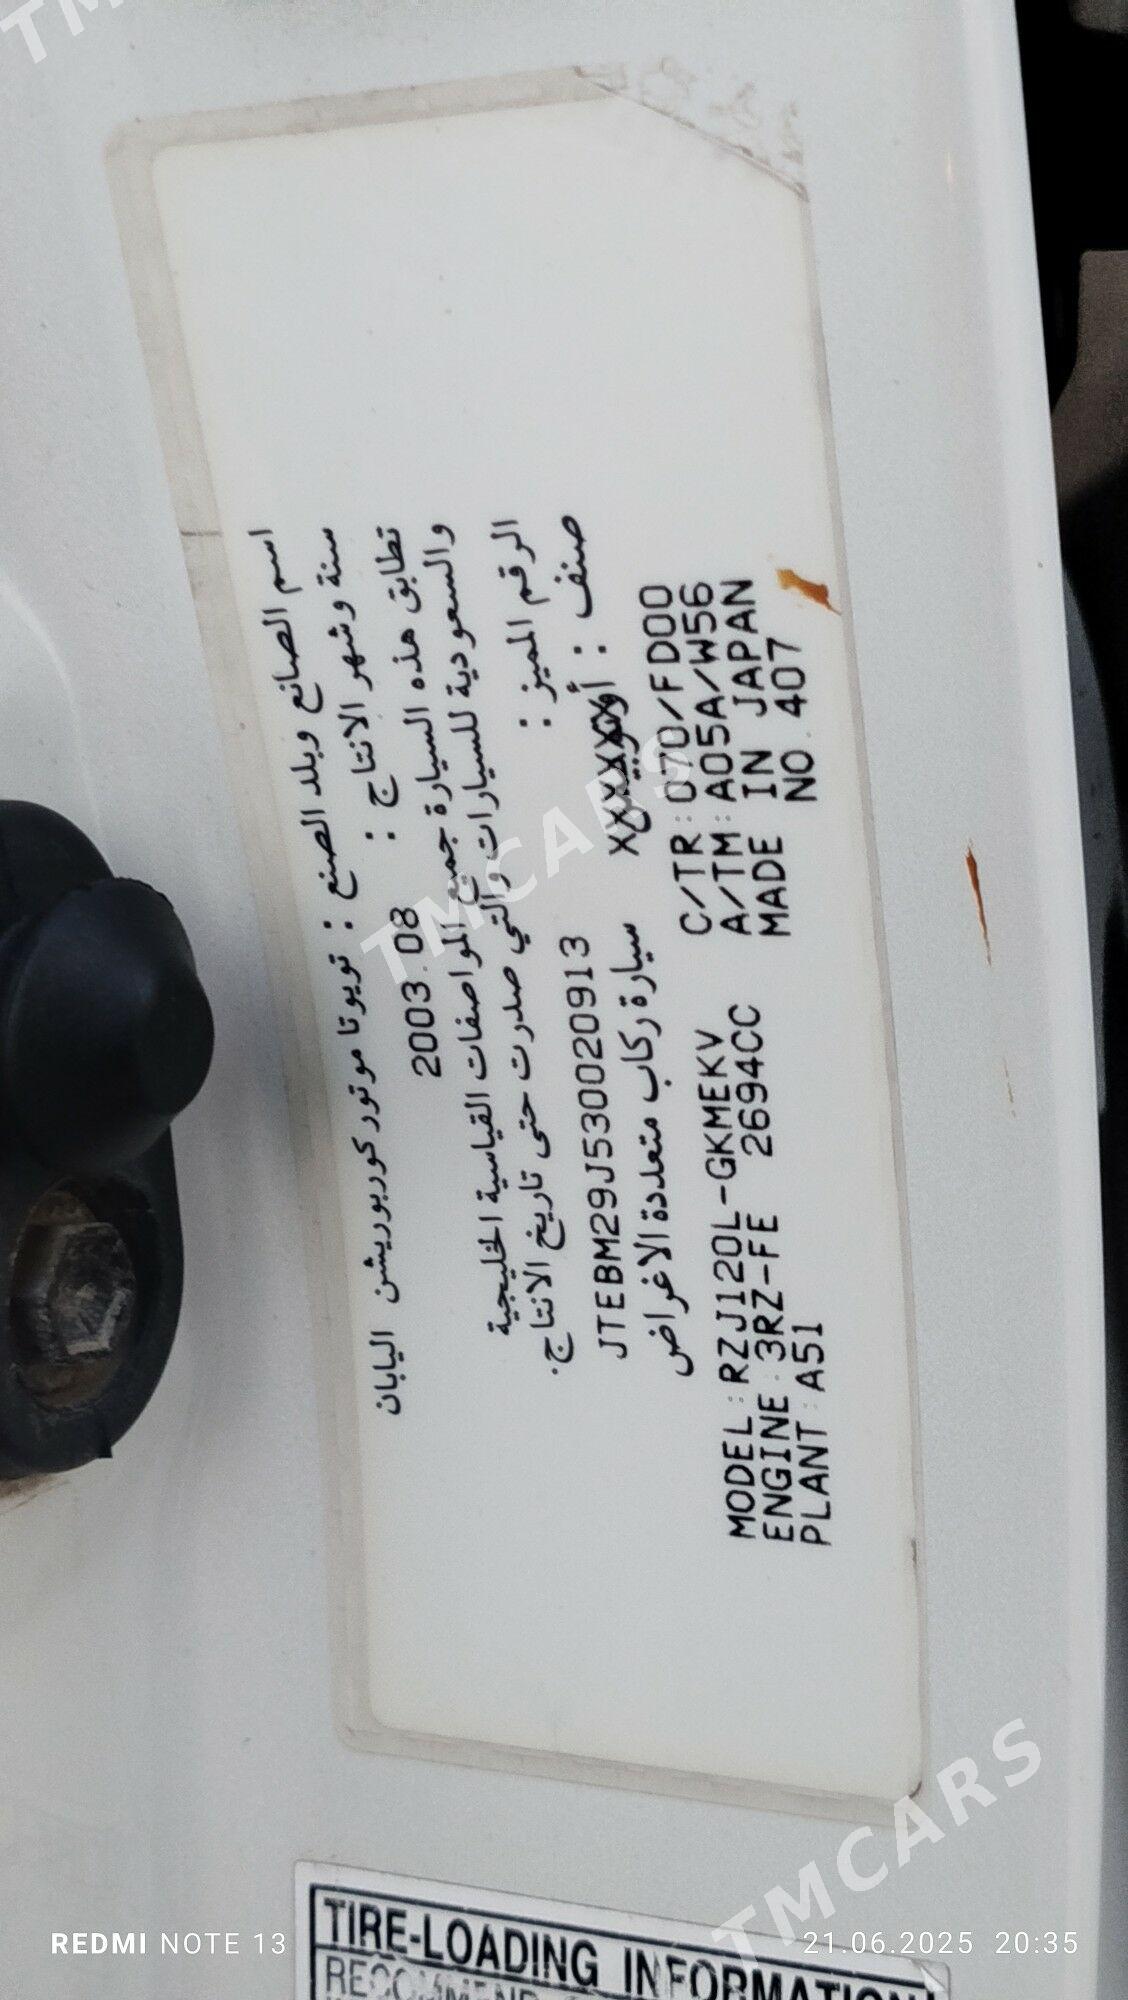 اسم الصانع وبلد الصنع : تويوتا موتور كوربوريشن اليابان
سنة وشهر الانتاج : 2003.08
تطابق هذه السيارة جميع المواصفات القياسية الخليجية
والسعودية للسيارات والتي صدرت حتى تاريخ الانتاج.
الرقم المميز : JTEBM29J530020913
صنف : سيارة ركاب متعددة الاغراض
MODEL : RZJ120L-GKMEKV C/TR : 070/FD00
ENGINE : 3RZ-FE 2694CC A/TM : A05A/W56
PLANT : A51 MADE IN JAPAN
NO.407
TIRE-LOADING INFORMATION
REDMI NOTE 13
21.06.2025 20:35
TMCARS
TMCARS